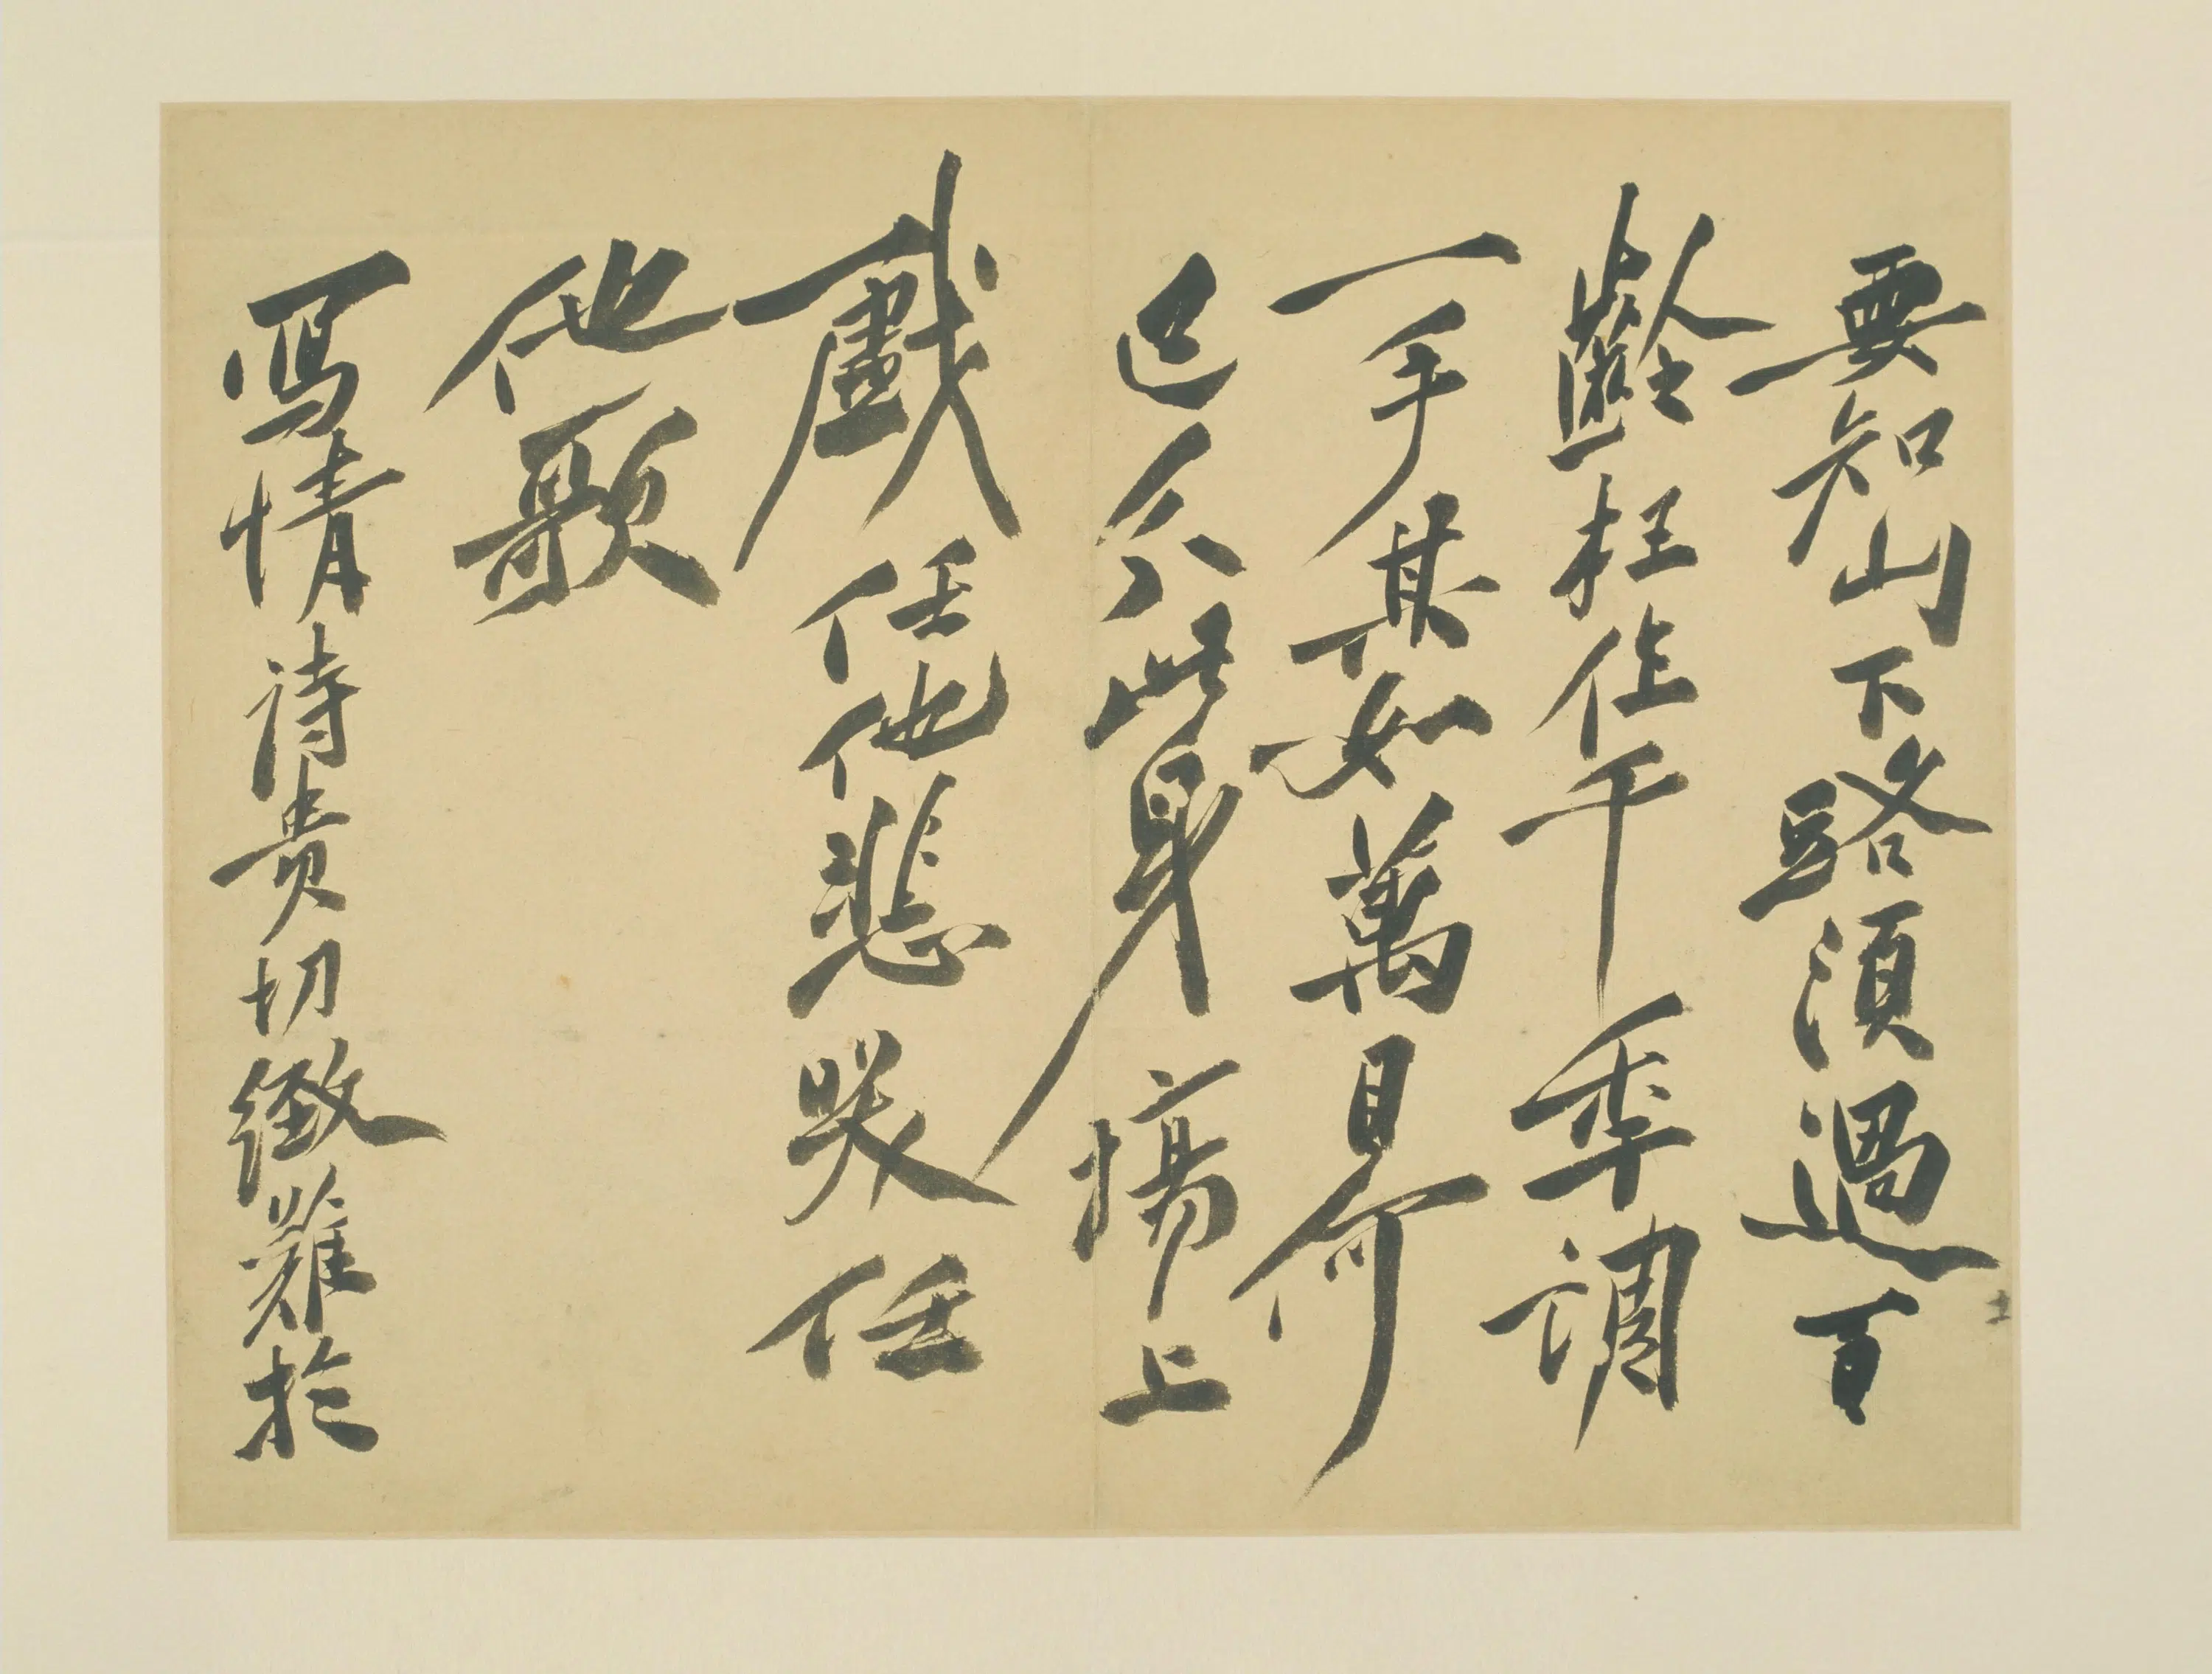 要知山下路須過百
齡枉住千年調
一手其如萬目何
已分此身場上
戲任他悲哭任
他歌
寫情詩貴切緻難於